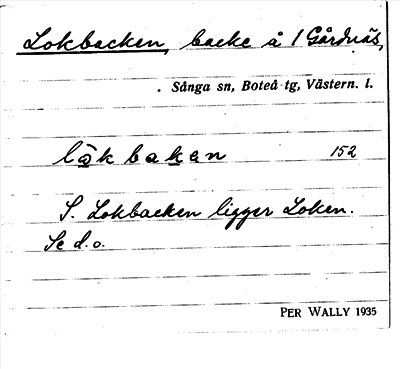 Lokbacken, backe å 1 Gårdnäs,
. Sånga sn, Boteå tg, Västern. l.
lo̰k bakan 152
S. Lokbacken ligger Loken.
Se d.o.
PER WALLY 1935